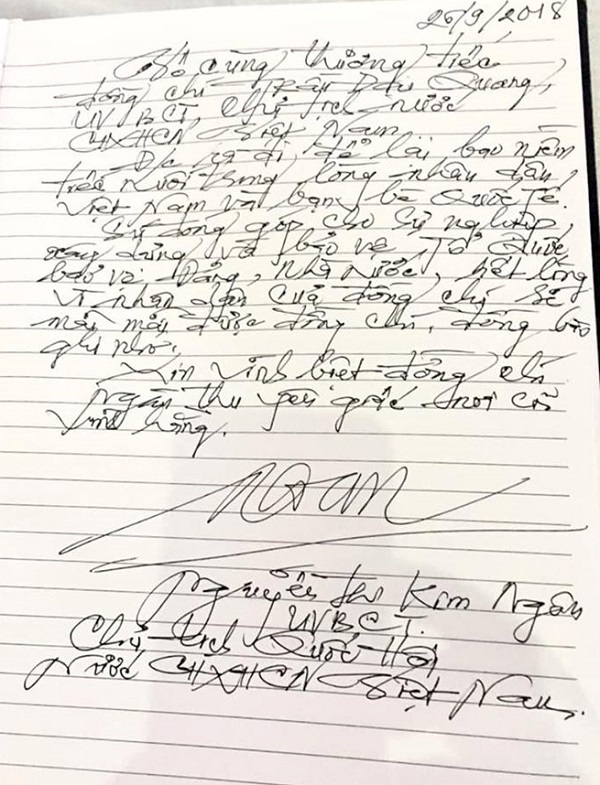 26/9/2018
Vô cùng thương tiếc
đồng chí Trần Đại Quang,
UVBCT, Chủ tịch nước
CHXHCN Việt Nam
Đ/c ra đi, để lại bao niềm
tiếc nuối trong lòng nhân dân,
Việt Nam và bạn bè Quốc tế.
Sự đóng góp cho sự nghiệp,
xây dựng và bảo vệ Tổ Quốc
bảo vệ Đảng, Nhà nước, hết lòng
vì nhân dân của đồng chí sẽ
mãi mãi được đồng chí, đồng bào
ghi nhớ.
Xin vĩnh biệt đồng chí
ngàn thu yên giấc nơi cõi
vĩnh hằng.
Ngân
Nguyễn Thị Kim Ngân
UVBCT.
Chủ tịch Quốc Hội
Nước CHXHCN Việt Nam.